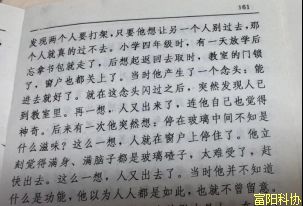 161
发现两个人要打架，只要他想让另一个人别过去，那
个人就真的过不去。小学四年级时，有一天放学后
忘拿书包就走了，后想起返回去取时，教室的门锁
了，窗户也都关上了。当时他产生了一个念头：能
进去就好了。就在这念头闪过之后，突然发现人已
到教室里。再一想，人又出来了，连他自己也觉得
神奇。后来有一次他突然想，停在玻璃中间不知是
什么滋味？这么一想，人就在窗户上停住了。他立
刻觉得满身、满脑子都是玻璃碴子，太难受了，赶
快出去。这么一想，人又出去了。当时他并不知道
什么是功能，他以为人人都是如此，也就不曾留意。
富阳科协